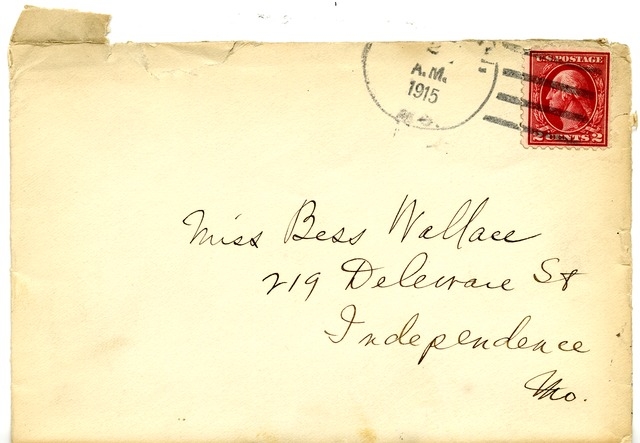 2
A.M.
1915
MO.
U.S. POSTAGE
2 CENTS 2
Miss Bess Wallace
219 Deleware St
Independence
Mo.